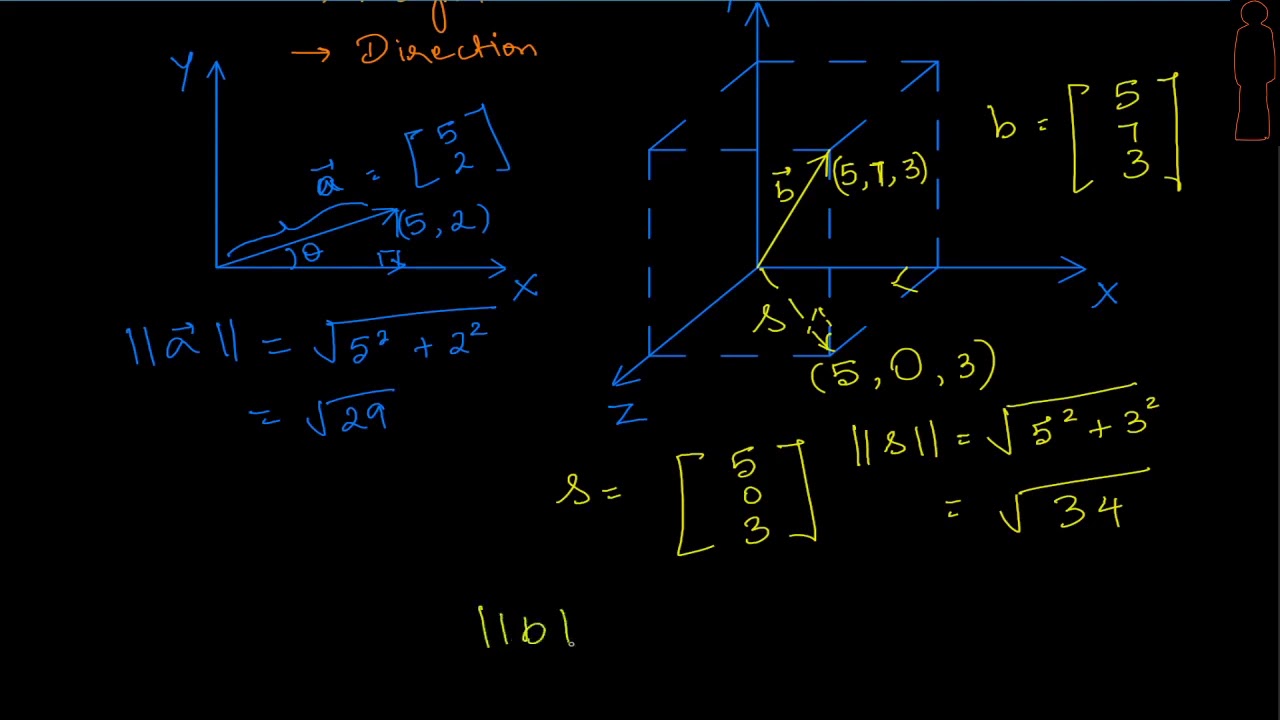 → Direction
Y
a⃗ = [5
2]
(5, 2)
θ
X
||a⃗|| = √5² + 2²
= √29
b⃗
(5, 7, 3)
b = [5
7
3]
X
Z
s
(5, 0, 3)
s = [5
0
3]
||s|| = √5² + 3²
= √34
||b|